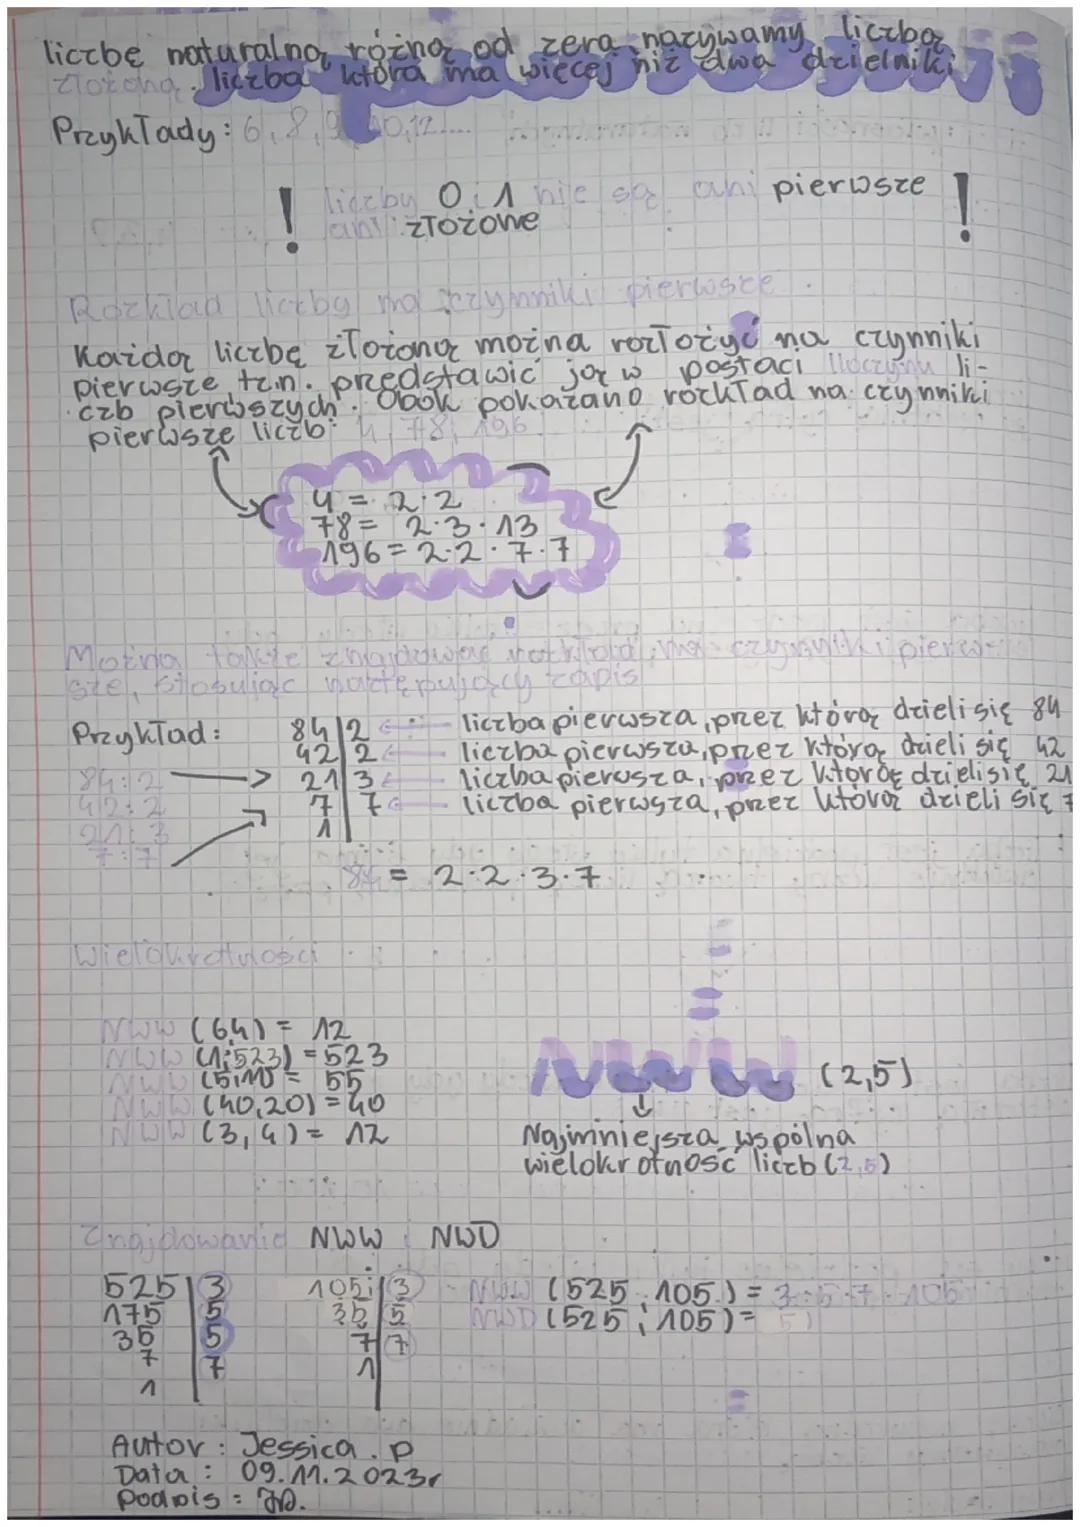 liczbę naturalną różną od zera nazywamy liczbą
złożoną. liczba która ma więcej niż dwa dzielniki
Przykłady: 6, 8, 9, 10, 12....
! liczby 0 i 1 nie są ani pierwsze !
ani złożone
Rozkład liczby na czynniki pierwsze
Każdą liczbę złożoną można rozłożyć na czynniki
pierwsze tzn. predstawić ją w postaci iloczynu li-
czb pierwszych. Obok pokazano rozkład na czynniki
pierwsze liczb: 4, 78, 196
4 = 2·2
78 = 2·3·13
196 = 2·2·7·7
Można także znajdować rozkład na czynniki pierw-
sze, stosując następujący zapis
Przykład: 84 | 2 ← liczba pierwsza, przez którą dzieli się 84
42 | 2 ← liczba pierwsza, przez którą dzieli się 42
84:2 → 21 | 3 ← liczba pierwsza, przez którą dzieli się 21
42:2 7 | 7 ← liczba pierwsza, przez którą dzieli się 7
21:3 1
7:7
84 = 2·2·3·7
Wielokrotności
NWW (6,4) = 12
NWW (1;523) = 523
NWW (5,11) = 55
NWW (40,20) = 40
NWW (3,4) = 12
NWW (2,5)
Najmniejsza wspólna
wielokrotność liczb (2,5)
Znajdowanie NWW i NWD
525 | 3 105 | 3 NWW (525, 105) = 3·5·7·105
175 | 5 35 | 5 NWD (525, 105) =
35 | 5 7 | 7
7 | 7 1
1
Autor: Jessica. P
Data: 09.11.2023r
Podpis: JP.